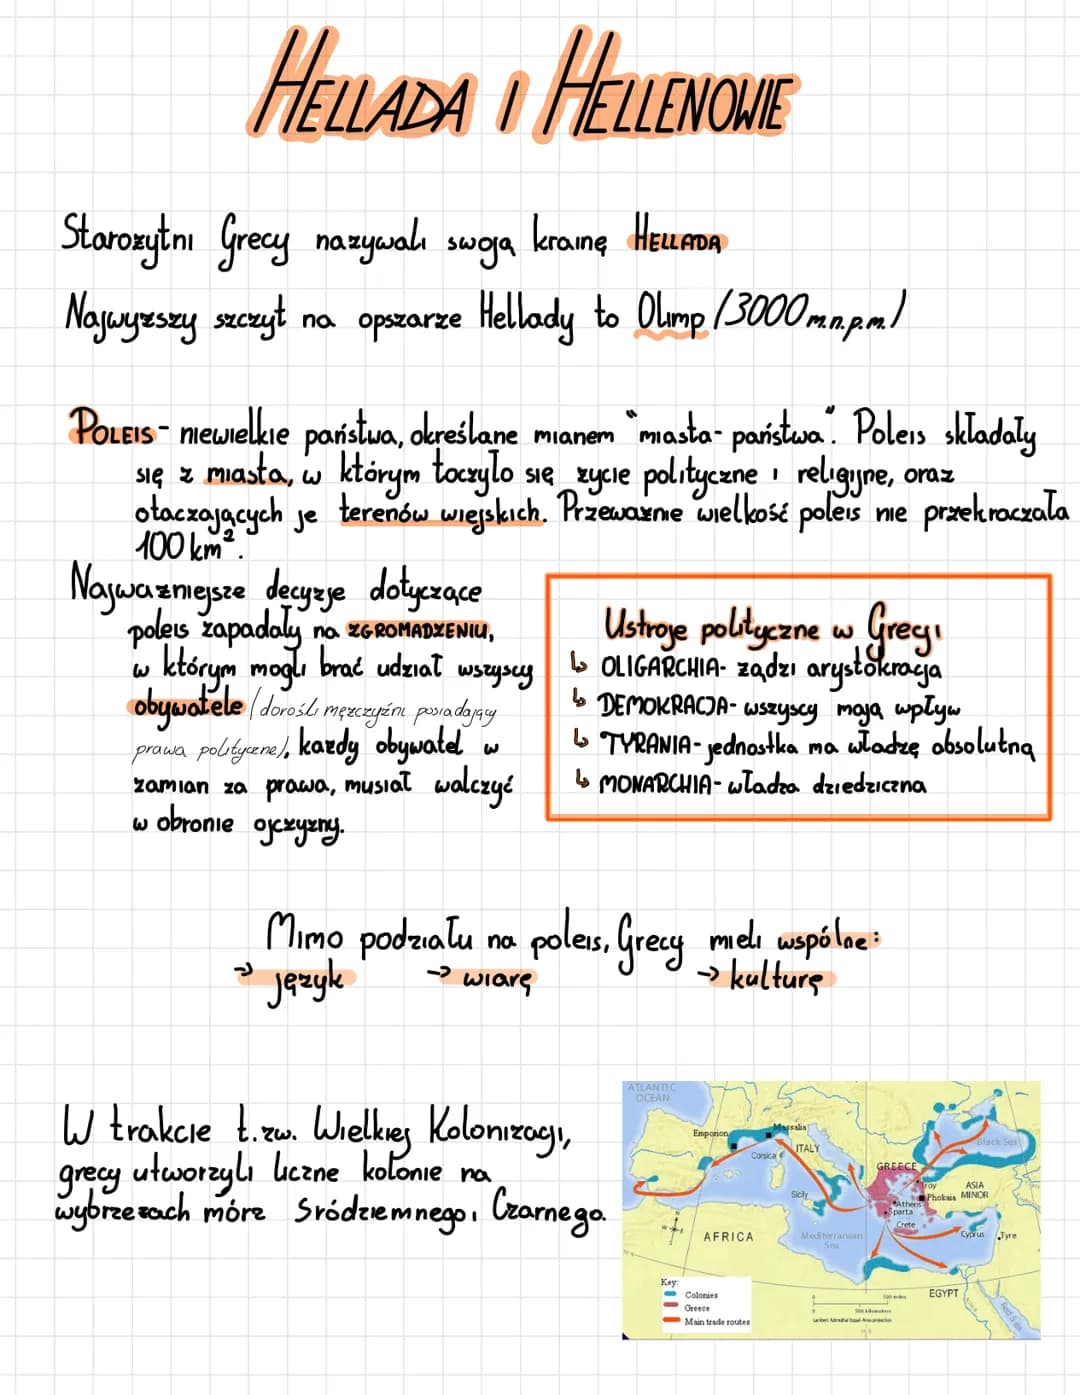 HELLADA I HELLENOWIE
Starożytni Grecy nazywali swoją krainę HELLADĄ
Najwyższy szczyt na opszarze Hellady to Olimp /3000 m.n.p.m./
POLEIS - niewielkie państwa, określane mianem "miasta-państwa". Poleis składały
się z miasta, w którym toczyło się życie polityczne i religijne, oraz
otaczających je terenów wiejskich. Przeważnie wielkość poleis nie przekraczała
100 km².
Najważniejsze decyzje dotyczące
poleis zapadały na ZGROMADZENIU,
w którym mogli brać udział wszyscy
obywatele /dorośli mężczyźni posiadający
prawa polityczne/, każdy obywatel w
zamian za prawa, musiał walczyć
w obronie ojczyzny.
Ustroje polityczne w Grecji
↳ OLIGARCHIA- żądzi arystokracja
↳ DEMOKRACJA- wszyscy mają wpływ
↳ TYRANIA- jednostka ma władzę absolutną
↳ MONARCHIA- władza dziedziczna
Mimo podziału na poleis, Grecy mieli wspólne:
→ język → wiarę → kulturę
W trakcie t.zw. Wielkiej Kolonizacji,
grecy utworzyli liczne kolonie na
wybrzeżach mórz Śródziemnego i Czarnego.
ATLANTIC
OCEAN
Emporion
Massalia
Corsica
ITALY
Black Sea
GREECE
Troy
ASIA
MINOR
Phokaia
Sicily
Athens
Sparta
Crete
AFRICA
Mediterranean
Sea
Cyprus
Tyre
EGYPT
Red Sea
Key:
Colonies
Greece
Main trade routes